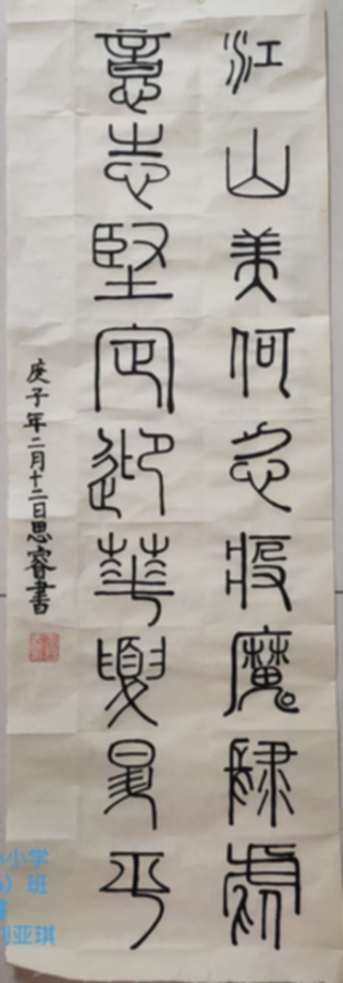 江山美何忍疫魔肆虐
意志堅定迎華夏昇平
庚子年二月十二日思睿書
小学
）班
亚琪